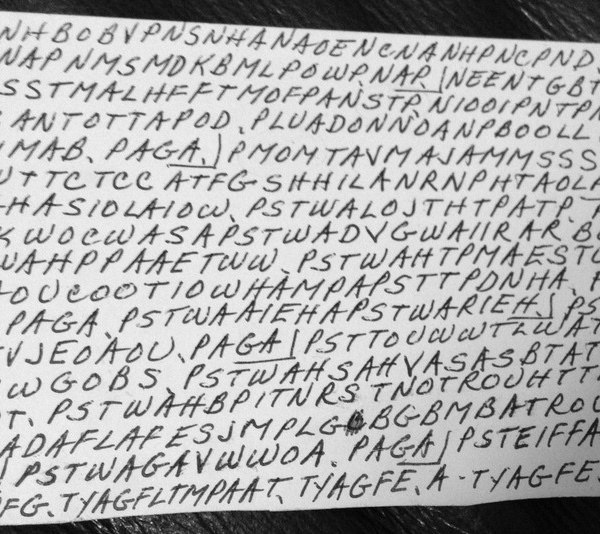 NHBOBVPNSNHANAOENCNANHPNCPND
NAPNMSMDKBMLPOWP.NAP.|NEENTGBT
SSTMALHFFTMOFPANSTP.NIOOIPNTPN
ANTOTTAPOD. PLUADONNOANPBOOLL
MAB. PAGA.| PMOMTAVMAJAMMSSS
UTTCTCC ATFGSHHILANRNPHTAOLA
HASIOLAIOW. PSTWALOJTHTPATP.
KWOCWASAPSTWADVGWAIIRARBO
WAHPPAAETWW. PSTWAHTPMAESTO
OUCOOTIOWHAMPAPSTTPDNHA.
PAGA. PSTWAAIEHAPSTWARIEH.| PS
VJEOAOU. PAGA| PSTTOUWWTLWAT
WGOBS. PSTWAHSAHVASASBTAT
T. PSTWAHBPITNRS TNOTROUHTT
ADAFLAFESJMPLG BGBMBATROO
| PSTWAGAVWWOA. PAGA| PSTEIFFA
FG. TYAGFLTMPAAT. TYAGFE. A-TYAGFE.